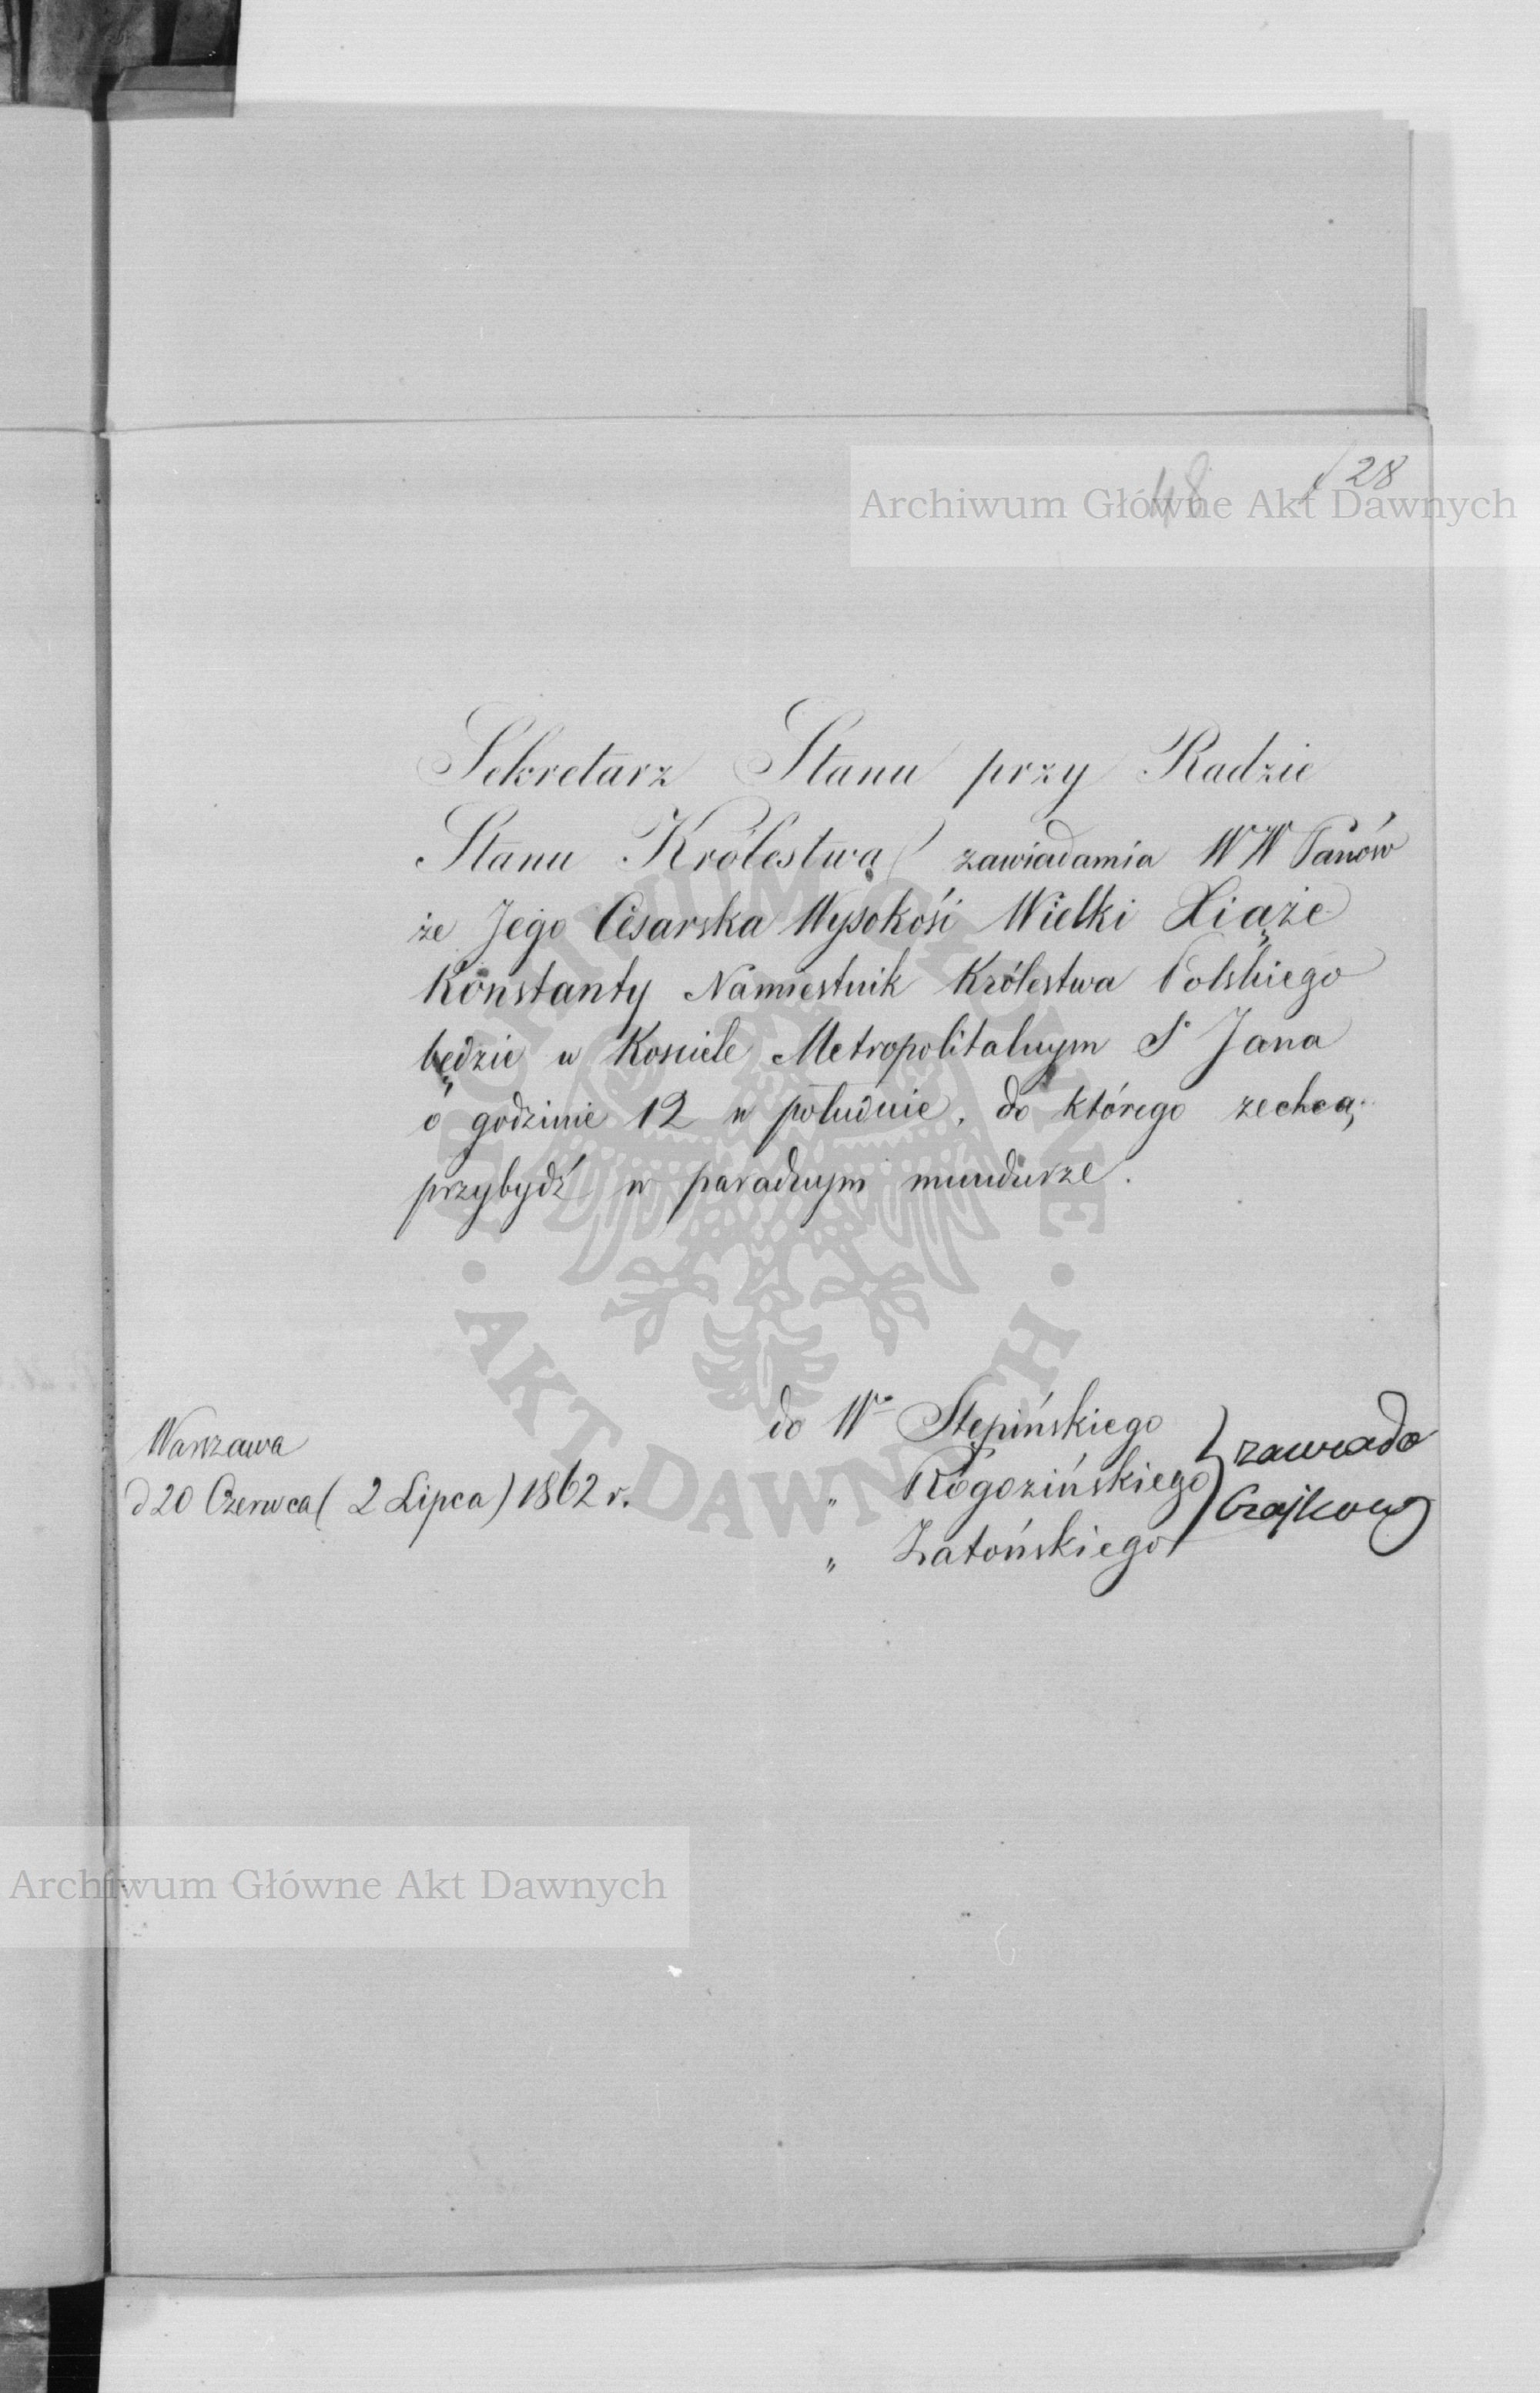 28
48
Archiwum Główne Akt Dawnych
Sekretarz Stanu przy Radzie
Stanu Królestwa zawiadamia WW Panów
że Jego Cesarska Wysokość Wielki Xiąże
Konstanty Namiestnik Królestwa Polskiego
będzie w Kosciele Metropolitalnym Sº Jana
o godzinie 12 w południe, do którego zechcą
przybydź w paradnym mundurze.
ARCHIWUM GŁÓWNE · AKT DAWNYCH ·
do Wº Stępińskiego
" Rogozińskiego
" Zatońskiego
Warszawa
d 20 Czerwca (2 Lipca) 1862 r.
Archiwum Główne Akt Dawnych